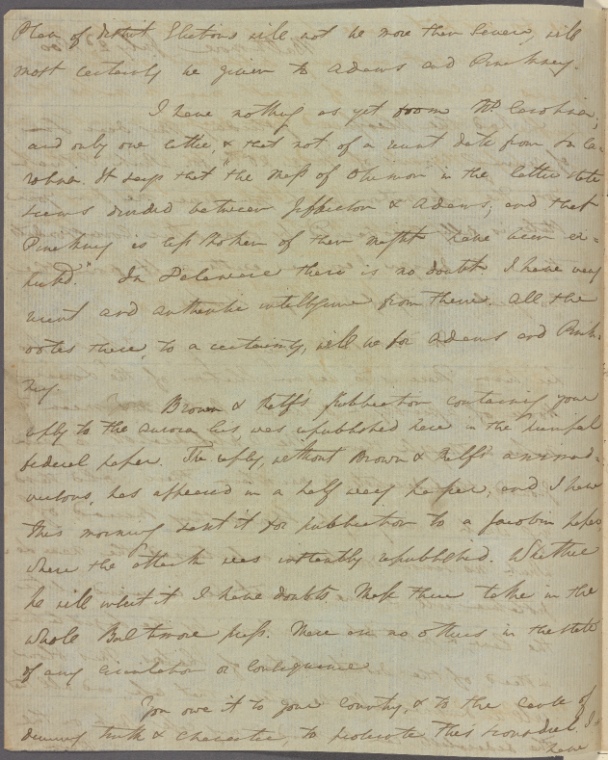 Plan of district Elections will not be more than seven, will
most certainly be given to Adams and Pinckney.
I have nothing as yet from No. Carolina,
and only one letter, & that not of a recent date from So Ca-
rolina. It says that the mass of Opinion in the latter state
seems divided between Jefferson & Adams; and that
Pinckney is less spoken of than might have been ex-
pected." In Delaware there is no doubt. I have very
recent and authentic intelligence from thence. All the
votes there, to a certainty, will be for Adams and Pinck-
ney.
Brown & Relfs publication containing your
reply to the aurora lies, was republished here in the principal
federal paper. The reply, without Brown & Relfs animad-
versions, has appeared in a half way paper, and I have
this morning sent it for publication to a Jacobin paper
where the attack was instantly republished. Whether
he will insert it I have doubts. These three take in the
whole Baltimore press. There are no others in the state
of any circulation or consequence
You owe it to your country, & to the cause of
truth & character, to prosecute this scoundrel, I
have